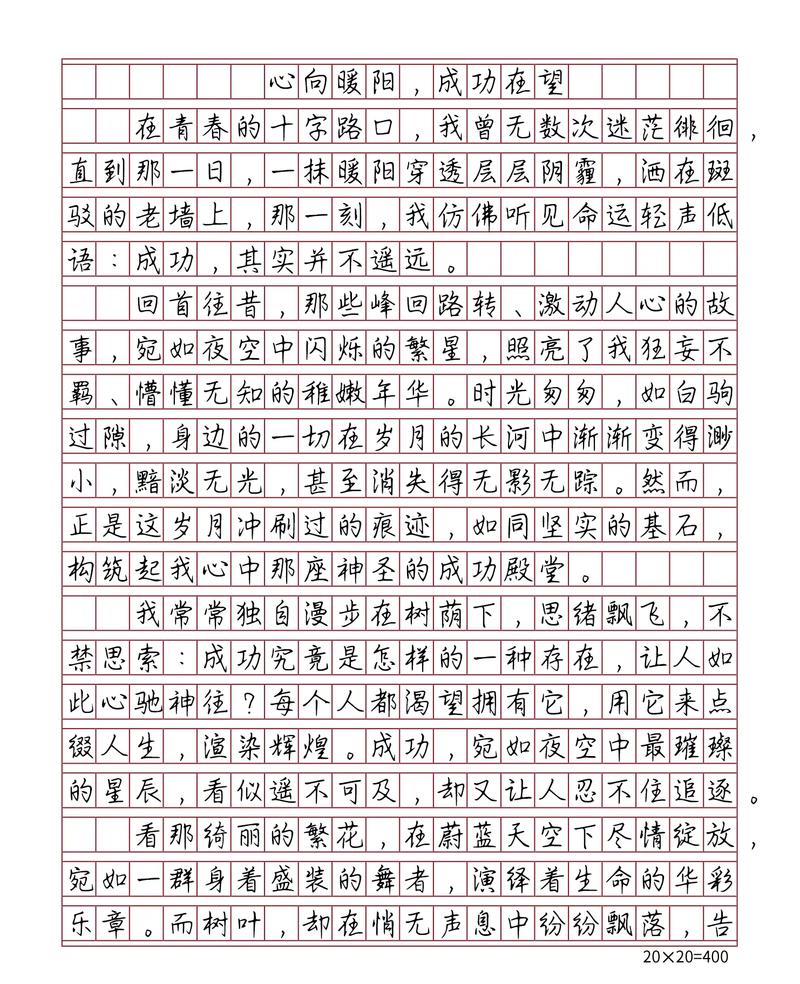 心向暖阳，成功在望
在青春的十字路口，我曾无数次迷茫徘徊，
直到那一日，一抹暖阳穿透层层阴霾，洒在斑
驳的老墙上，那一刻，我仿佛听见命运轻声低
语：成功，其实并不遥远。
回首往昔，那些峰回路转、激动人心的故
事，宛如夜空中闪烁的繁星，照亮了我狂妄不
羁、懵懂无知的稚嫩年华。时光匆匆，如白驹
过隙，身边的一切在岁月的长河中渐渐变得渺
小，黯淡无光，甚至消失得无影无踪。然而，
正是这岁月冲刷过的痕迹，如同坚实的基石，
构筑起我心中那座神圣的成功殿堂。
我常常独自漫步在树荫下，思绪飘飞，不
禁思索：成功究竟是怎样的一种存在，让人如
此心驰神往？每个人都渴望拥有它，用它来点
缀人生，渲染辉煌。成功，宛如夜空中最璀璨
的星辰，看似遥不可及，却又让人忍不住追逐。
看那绮丽的繁花，在蔚蓝天空下尽情绽放，
宛如一群身着盛装的舞者，演绎着生命的华彩
乐章。而树叶，却在悄无声息中纷纷飘落，告
20×20=400